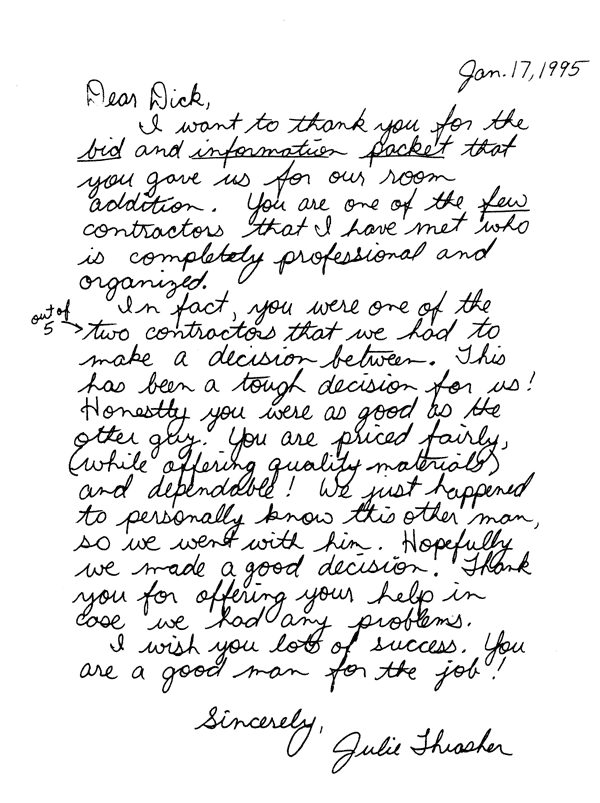 Jan. 17, 1995
Dear Dick,
I want to thank you for the
bid and information packet that
you gave us for our room
addition. You are one of the few
contractors that I have met who
is completely professional and
organized.
In fact, you were one of the
out of
5
two contractors that we had to
make a decision between. This
has been a tough decision for us!
Honestly you were as good as the
other guy. You are priced fairly,
(while offering quality materials)
and dependable! We just happened
to personally know this other man,
so we went with him. Hopefully
we made a good decision. Thank
you for offering your help in
case we had any problems.
I wish you lots of success. You
are a good man for the job!
Sincerely,
Julie Thrasher